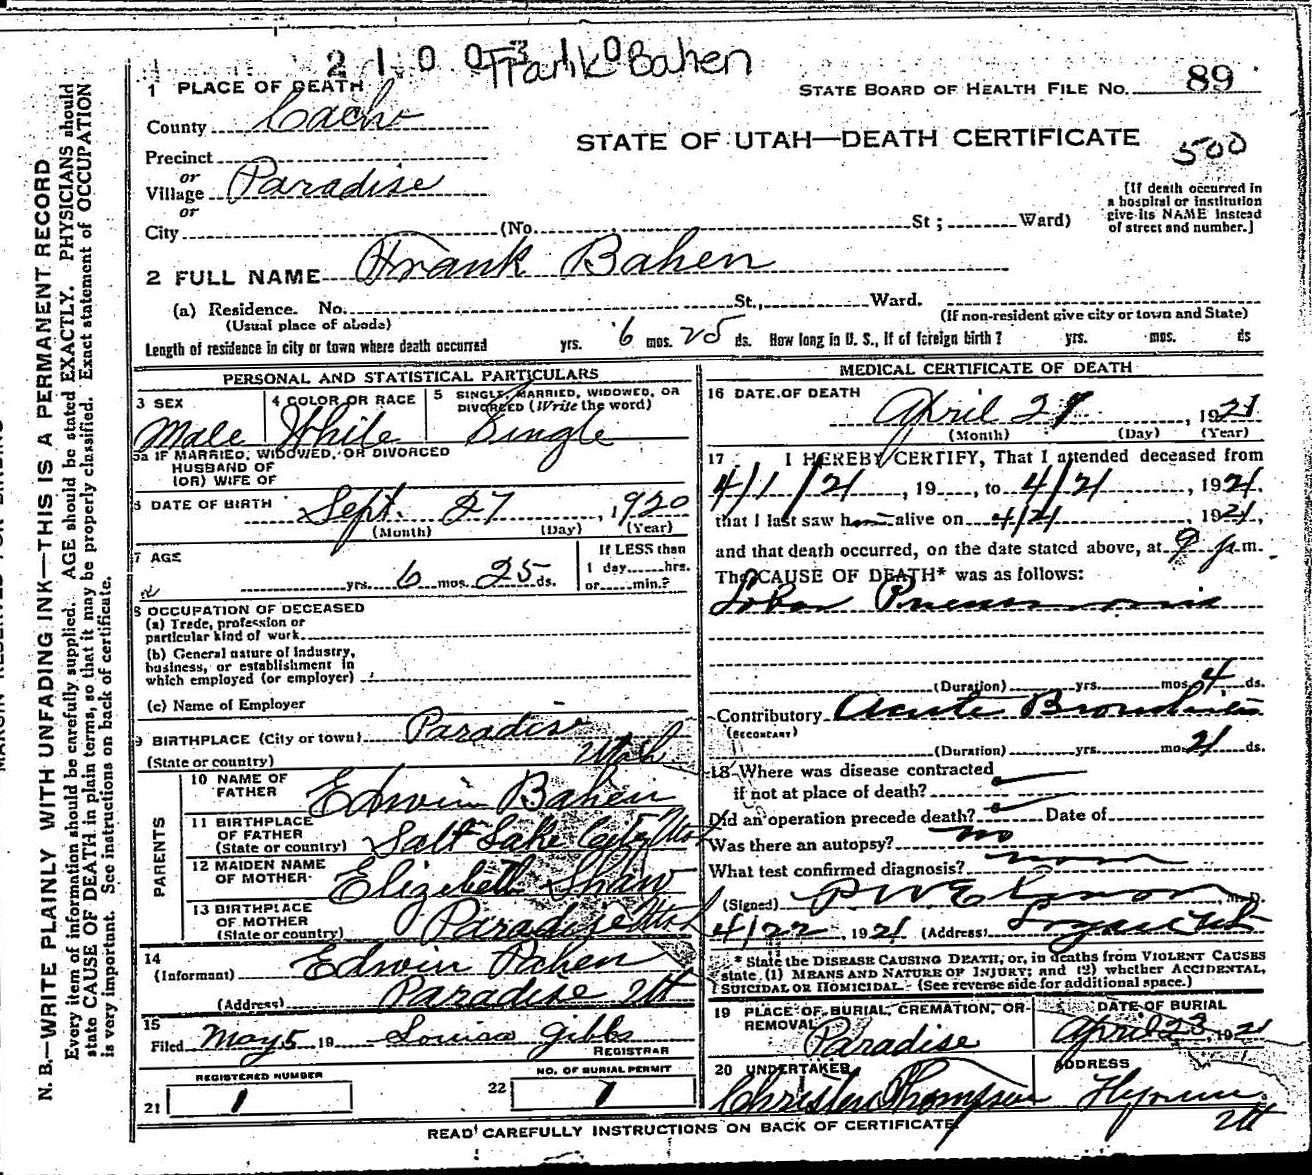 2 1 0 0 3 1 0
Frank Bahen
1 PLACE OF DEATH
STATE BOARD OF HEALTH FILE No. 89
County Cache
STATE OF UTAH—DEATH CERTIFICATE
500
Precinct
or
Village Paradise
or
City (No. St; Ward)
[If death occurred in
a hospital or institution
give its NAME instead
of street and number.]
2 FULL NAME Frank Bahen
(a) Residence. No. St., Ward.
(Usual place of abode)
(If non-resident give city or town and State)
Length of residence in city or town where death occurred yrs. 6 mos. 25 ds. How long in U. S., If of foreign birth? yrs. mos. ds
PERSONAL AND STATISTICAL PARTICULARS
3 SEX
Male
4 COLOR OR RACE
White
5 SINGLE, MARRIED, WIDOWED, OR
DIVORCED (Write the word)
Single
5a IF MARRIED, WIDOWED, OR DIVORCED
HUSBAND OF
(OR) WIFE OF
6 DATE OF BIRTH Sept. 27, 1920
(Month) (Day) (Year)
7 AGE
yrs. 6 mos. 25 ds.
If LESS than
1 day hrs.
or min.?
8 OCCUPATION OF DECEASED
(a) Trede, profession or
particular kind of work
(b) General nature of Industry,
business, or establishment in
which employed (or employer)
(c) Name of Employer
9 BIRTHPLACE (City or town) Paradise
(State or country) Utah
PARENTS
10 NAME OF
FATHER Edwin Bahen
11 BIRTHPLACE
OF FATHER
(State or country) Salt Lake City Utah
12 MAIDEN NAME
OF MOTHER Elizabeth Shaw
13 BIRTHPLACE
OF MOTHER
(State or country) Paradise Utah
14
(Informant) Edwin Bahen
(Address) Paradise Ut
15
Filed May 5 19 Louisa Gibbs
REGISTRAR
REGISTERED NUMBER
21 1
NO. OF BURIAL PERMIT
22 1
MEDICAL CERTIFICATE OF DEATH
16 DATE OF DEATH
April 21, 1921
(Month) (Day) (Year)
17 I HEREBY CERTIFY, That I attended deceased from
4/1/21, 19, to 4/21, 1921,
that I last saw h alive on 4/21, 1921,
and that death occurred, on the date stated above, at 9 p.m.
The CAUSE OF DEATH* was as follows:
Lobar Pneumonia
(Duration) yrs. mos. 4 ds.
Contributory Acute Bronchitis
(SECONDARY)
(Duration) yrs. mo. 21 ds.
18 Where was disease contracted
if not at place of death?
Did an operation precede death? Date of
Was there an autopsy? no
What test confirmed diagnosis?
(Signed) M. D.
4/22, 1921 (Address) Logan Utah
* State the DISEASE CAUSING DEATH, or, in deaths from VIOLENT CAUSES
state (1) MEANS AND NATURE OF INJURY; and (2) whether ACCIDENTAL,
SUICIDAL OR HOMICIDAL. (See reverse side for additional space.)
19 PLACE OF BURIAL, CREMATION, OR
REMOVAL Paradise
DATE OF BURIAL
April 23, 1921
20 UNDERTAKER
Christen Thompson
ADDRESS
Hyrum
Ut
READ CAREFULLY INSTRUCTIONS ON BACK OF CERTIFICATE
N. B.—WRITE PLAINLY WITH UNFADING INK—THIS IS A PERMANENT RECORD
Every item of information should be carefully supplied. AGE should be stated EXACTLY. PHYSICIANS should
state CAUSE OF DEATH in plain terms, so that it may be properly classified. Exact statement of OCCUPATION
is very important. See instructions on back of certificate.